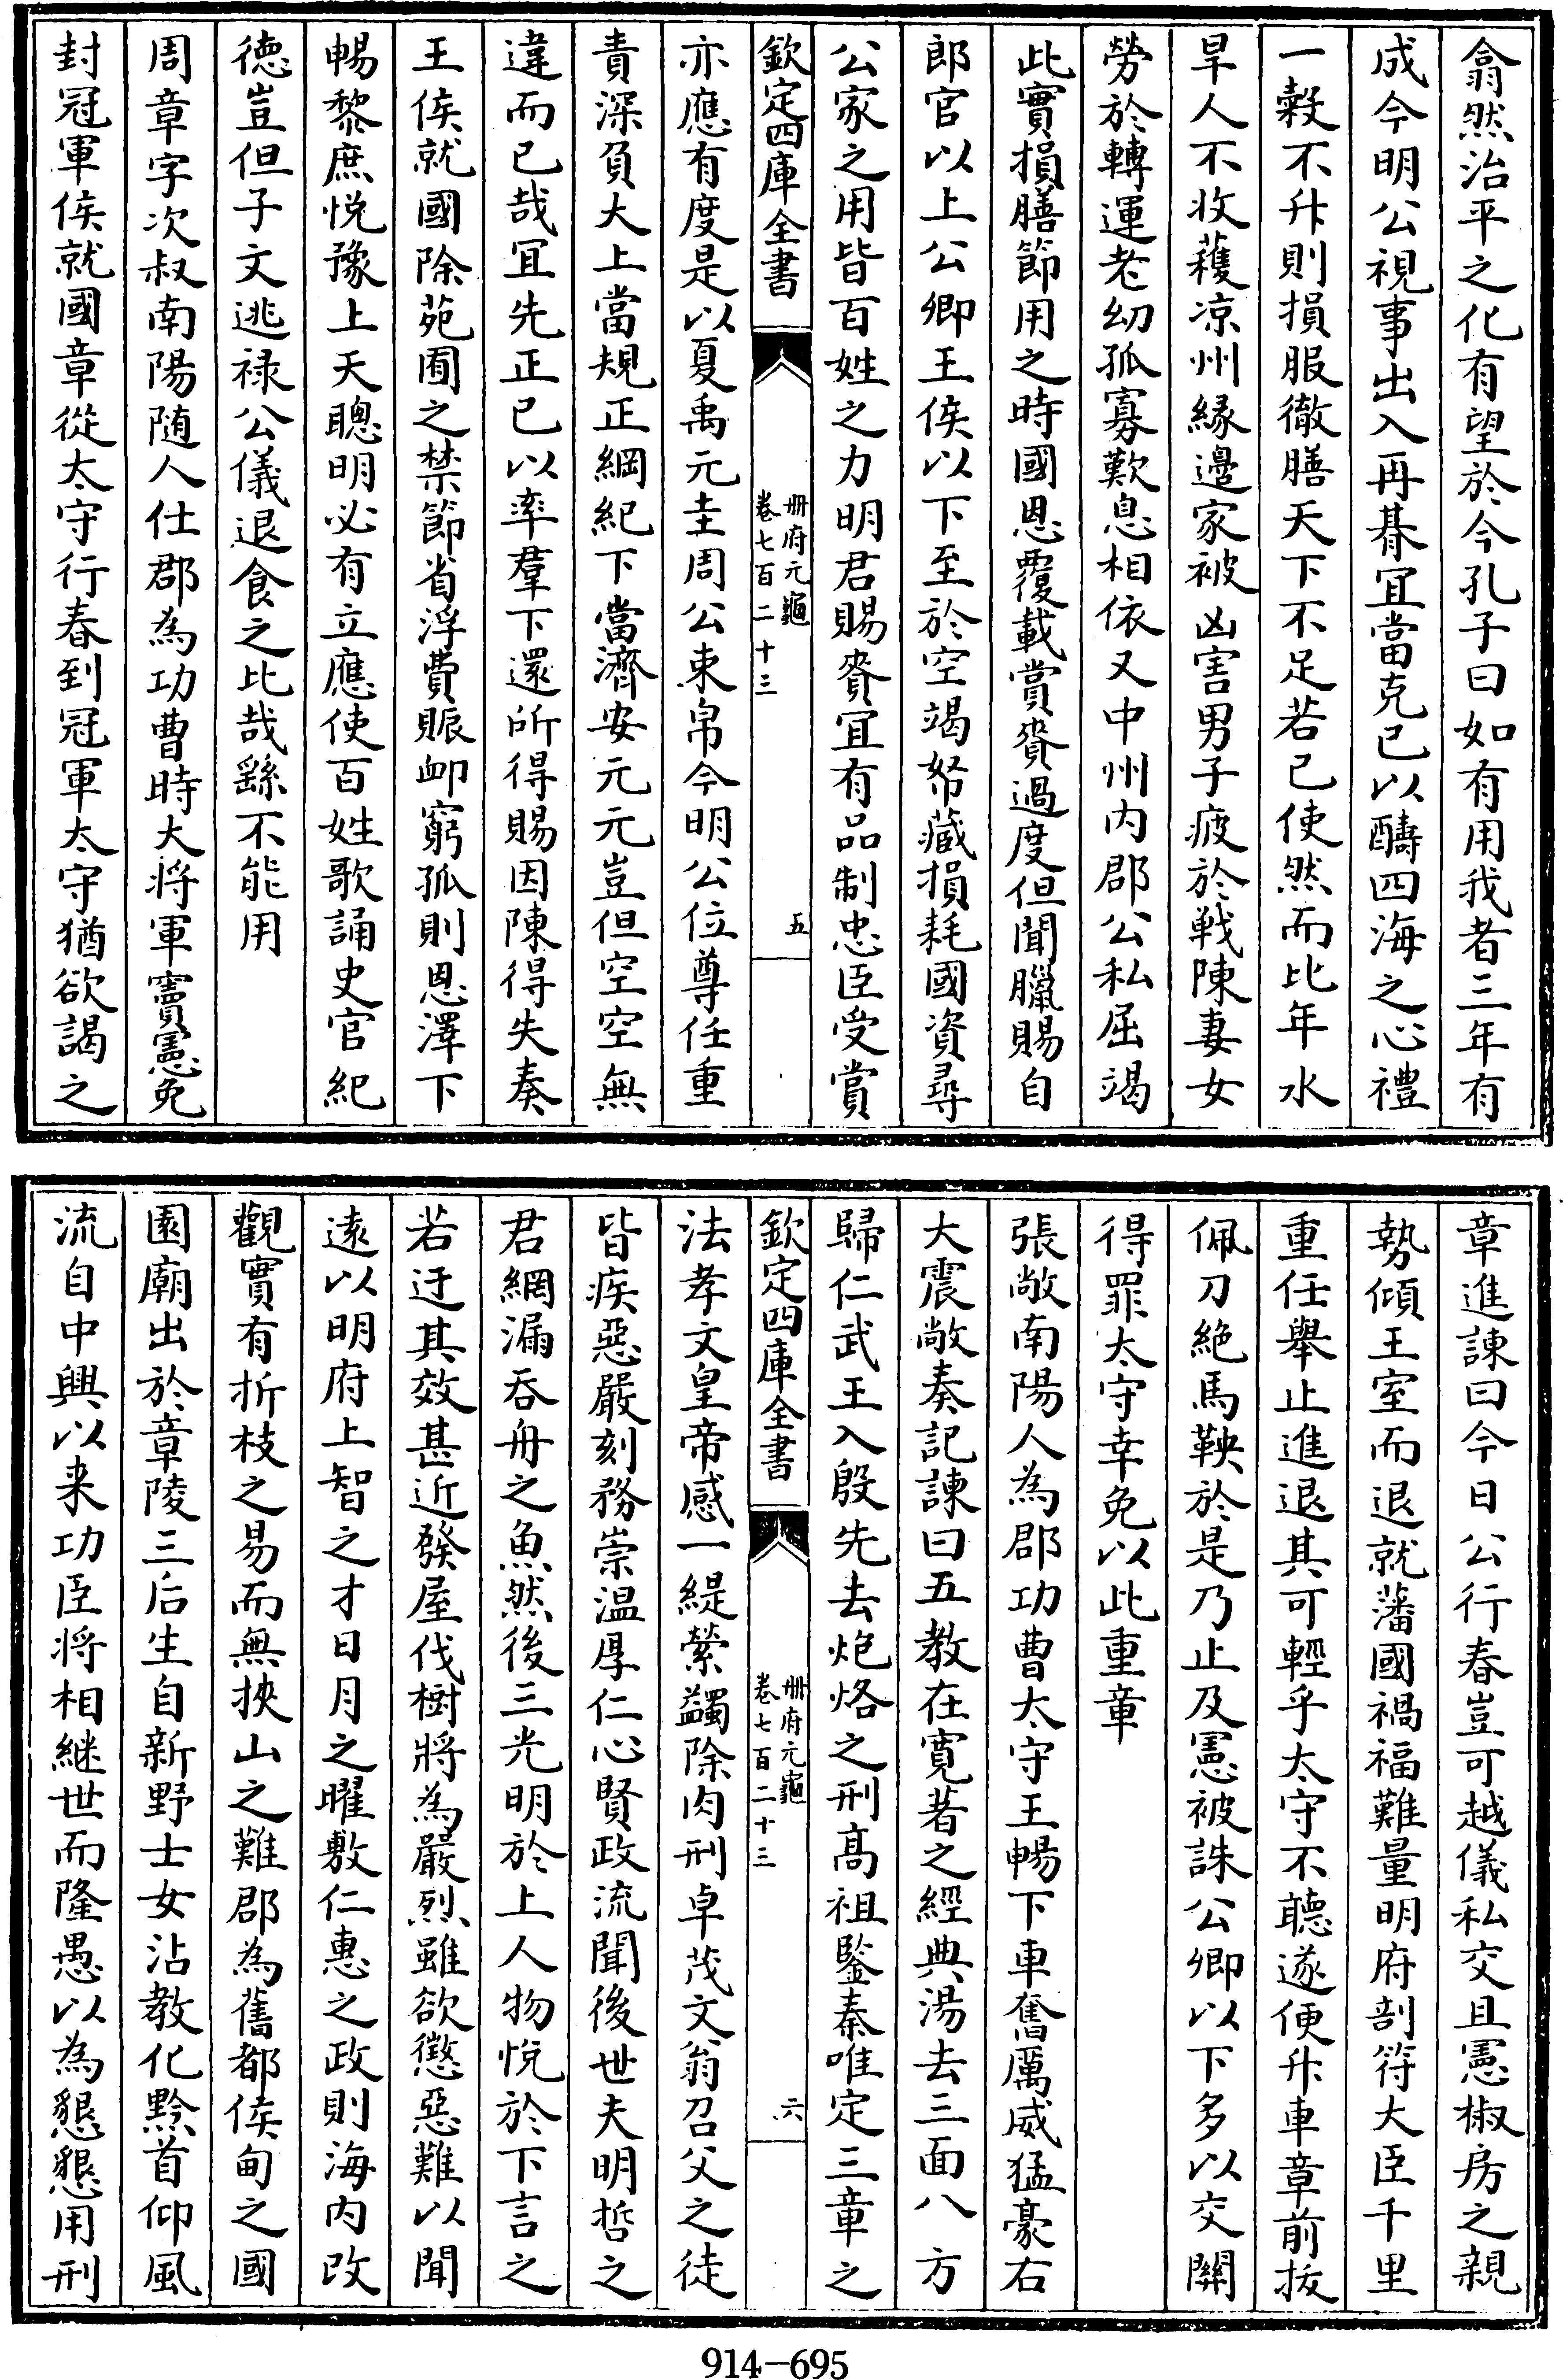 翕然治平之化有望於今孔子曰如有用我者三年有
成今明公視事出入再朞宜當克己以醻四海之心禮
一穀不升則損服徹膳天下不足若己使然而比年水
旱人不收穫凉州縁邉家被凶害男子疲於戰陳妻女
勞於轉運老幼孤寡歎息相依又中州内郡公私屈竭
此實損膳節用之時國恩覆載賞賚過度但聞臘賜自
郎官以上公卿王侯以下至於空竭帑藏損耗國資尋
公家之用皆百姓之力明君賜賚宜有品制忠臣受賞
欽定四庫全書
册府元龜
卷七百二十三
五
亦應有度是以夏禹元圭周公束帛今明公位尊任重
責深負大上當規正綱紀下當濟安元元豈但空空無
違而已哉宜先正已以率羣下還所得賜因陳得失奏
王侯就國除苑囿之禁節省浮費賑衂窮孤則恩澤下
暢黎庶悅豫上天聰明必有立應使百姓歌誦史官紀
徳豈但子文逃禄公儀退食之比哉繇不能用
周章字次叔南陽随人仕郡為功曹時大將軍竇憲免
封冠軍侯就國章從太守行春到冠軍太守猶欲謁之
章進諫曰今日公行春豈可越儀私交且憲椒房之親
勢傾王室而退就藩國禍福難量明府剖符大臣千里
重任舉止進退其可輕乎太守不聽遂便升車章前拔
佩刀絶馬鞅於是乃止及憲被誅公卿以下多以交關
得罪太守幸免以此重章
張敞南陽人為郡功曹太守王暢下車奮厲威猛豪右
大震敞奏記諫曰五教在寛著之經典湯去三面八方
歸仁武王入殷先去炮烙之刑髙祖鑒秦唯定三章之
欽定四庫全書
册府元龜
卷七百二十三
六
法孝文皇帝感一緹縈蠲除肉刑卓茂文翁召父之徒
皆疾惡嚴刻務崇温厚仁心賢政流聞後世夫明哲之
君網漏吞舟之魚然後三光明於上人物悅於下言之
若迂其效甚近發屋伐樹將為嚴烈雖欲懲惡難以聞
逺以明府上智之才日月之曜敷仁惠之政則海内改
觀實有折枝之易而無挾山之難郡為舊都侯甸之國
園廟出於章陵三后生自新野士女沾教化黔首仰風
流自中興以来功臣將相繼世而隆愚以為懇懇用刑
914-695